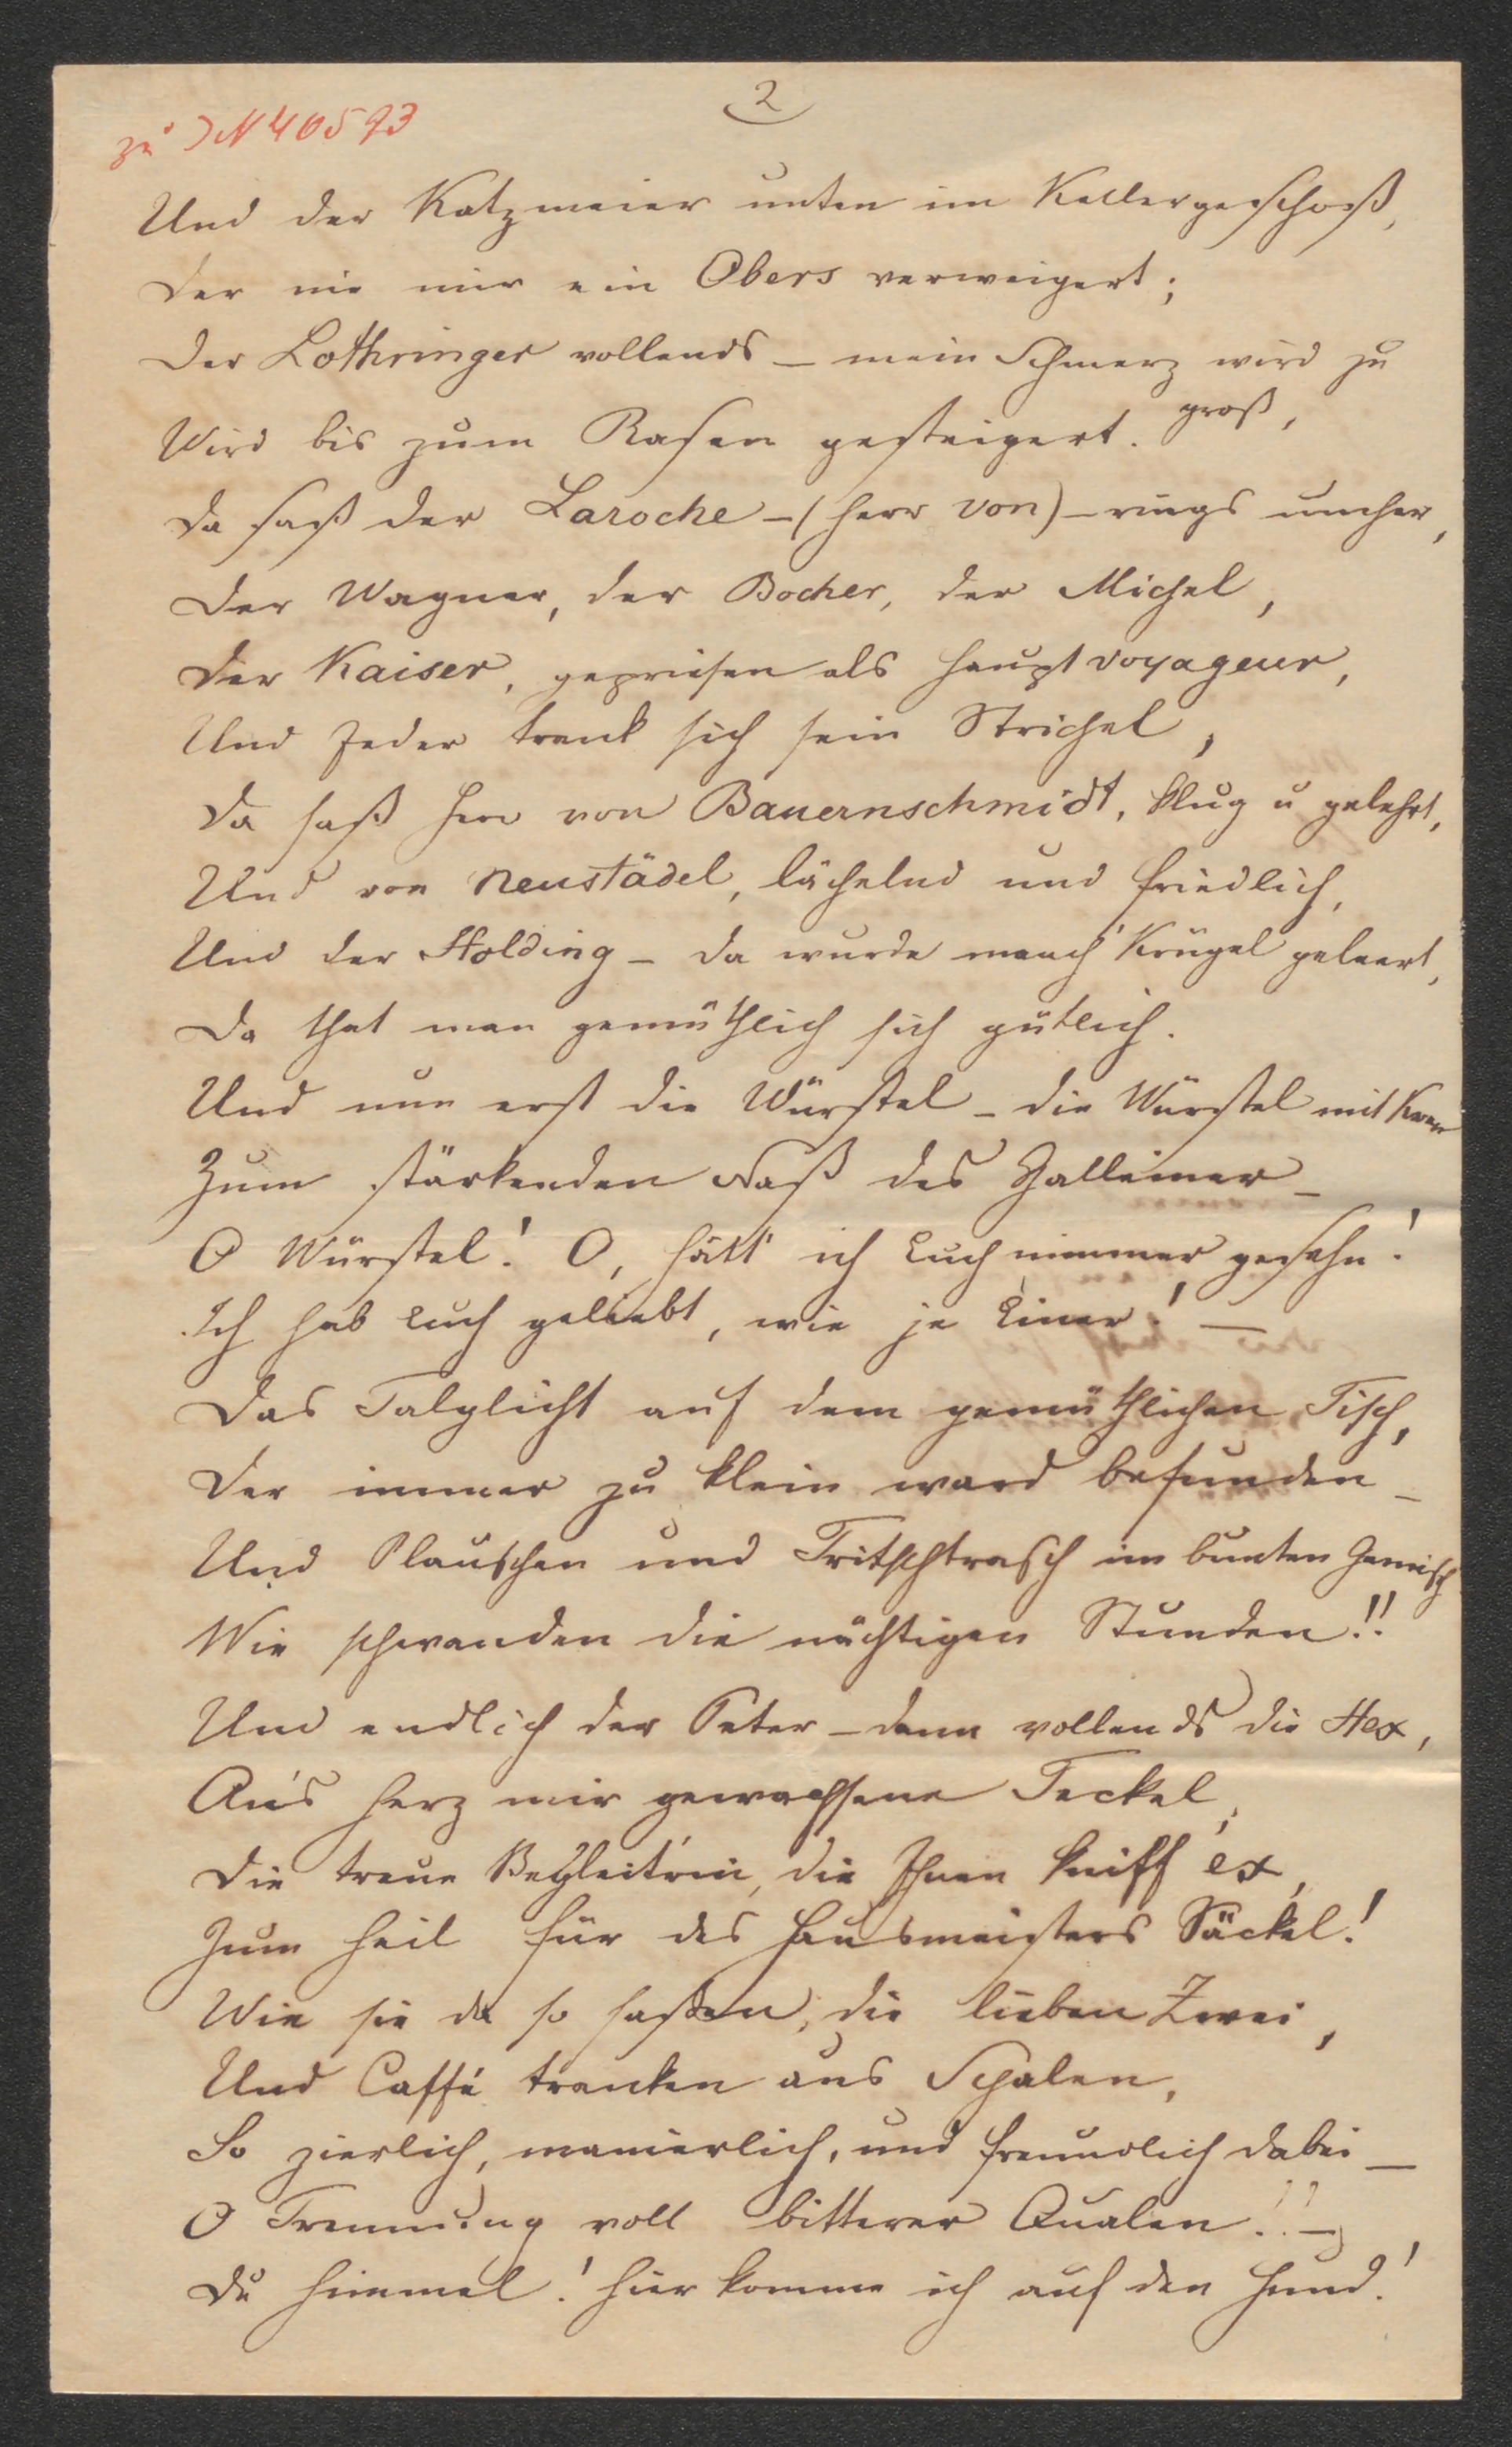 2
zu IN 40593
Und der Katzmeier unten im Kellergeschoß,
Der nie mir ein Obers verweigert;
Der Lothringer vollends – mein Schmerz wird zu
groß,
Wird bis zum Rasen gesteigert.
Da saß der Laroche – (Herr von) – rings umher,
Der Wagner, der Bocher, der Michel,
Der Kaiser, gepriesen als Hauptvoyageur,
Und Jeder trank sich sein Strichel,
Da saß Herr von Bauernschmidt, klug u gelehrt,
Und von Neustädel, lächelnd und friedlich,
Und der Holding – da wurde manch' Krügel geleert,
Da that man gemüthlich sich gütlich.
Und nun erst die Würstel – die Würstel mit Kren
Zum stärkenden Naß des Halleiner –
O Würstel! O, hätt' ich Euch nimmer gesehn!
Ich hab Euch geliebt, wie je Einer! –
Das Talglicht auf dem gemüthlichen Tisch,
Der immer zu klein ward befunden –
Und Plauschen und Tritschtrasch im bunten Gemisch
Wie schwanden die nächtigen Stunden!!
Und endlich der Peter – dann vollends die Hex,
An's Herz mir gewachsene Teckel,
Die treue Begleit'rin, die Ihnen kniff ex,
Zum Heil für des Hausmeisters Säckel!
Wie sie da so saßen, die lieben Zwei,
Und Caffé tranken aus Schalen,
So zierlich, manierlich, und freundlich dabei –
O Trennung voll bitterer Qualen!! –
Du Himmel! hier komme ich auf den Hund!